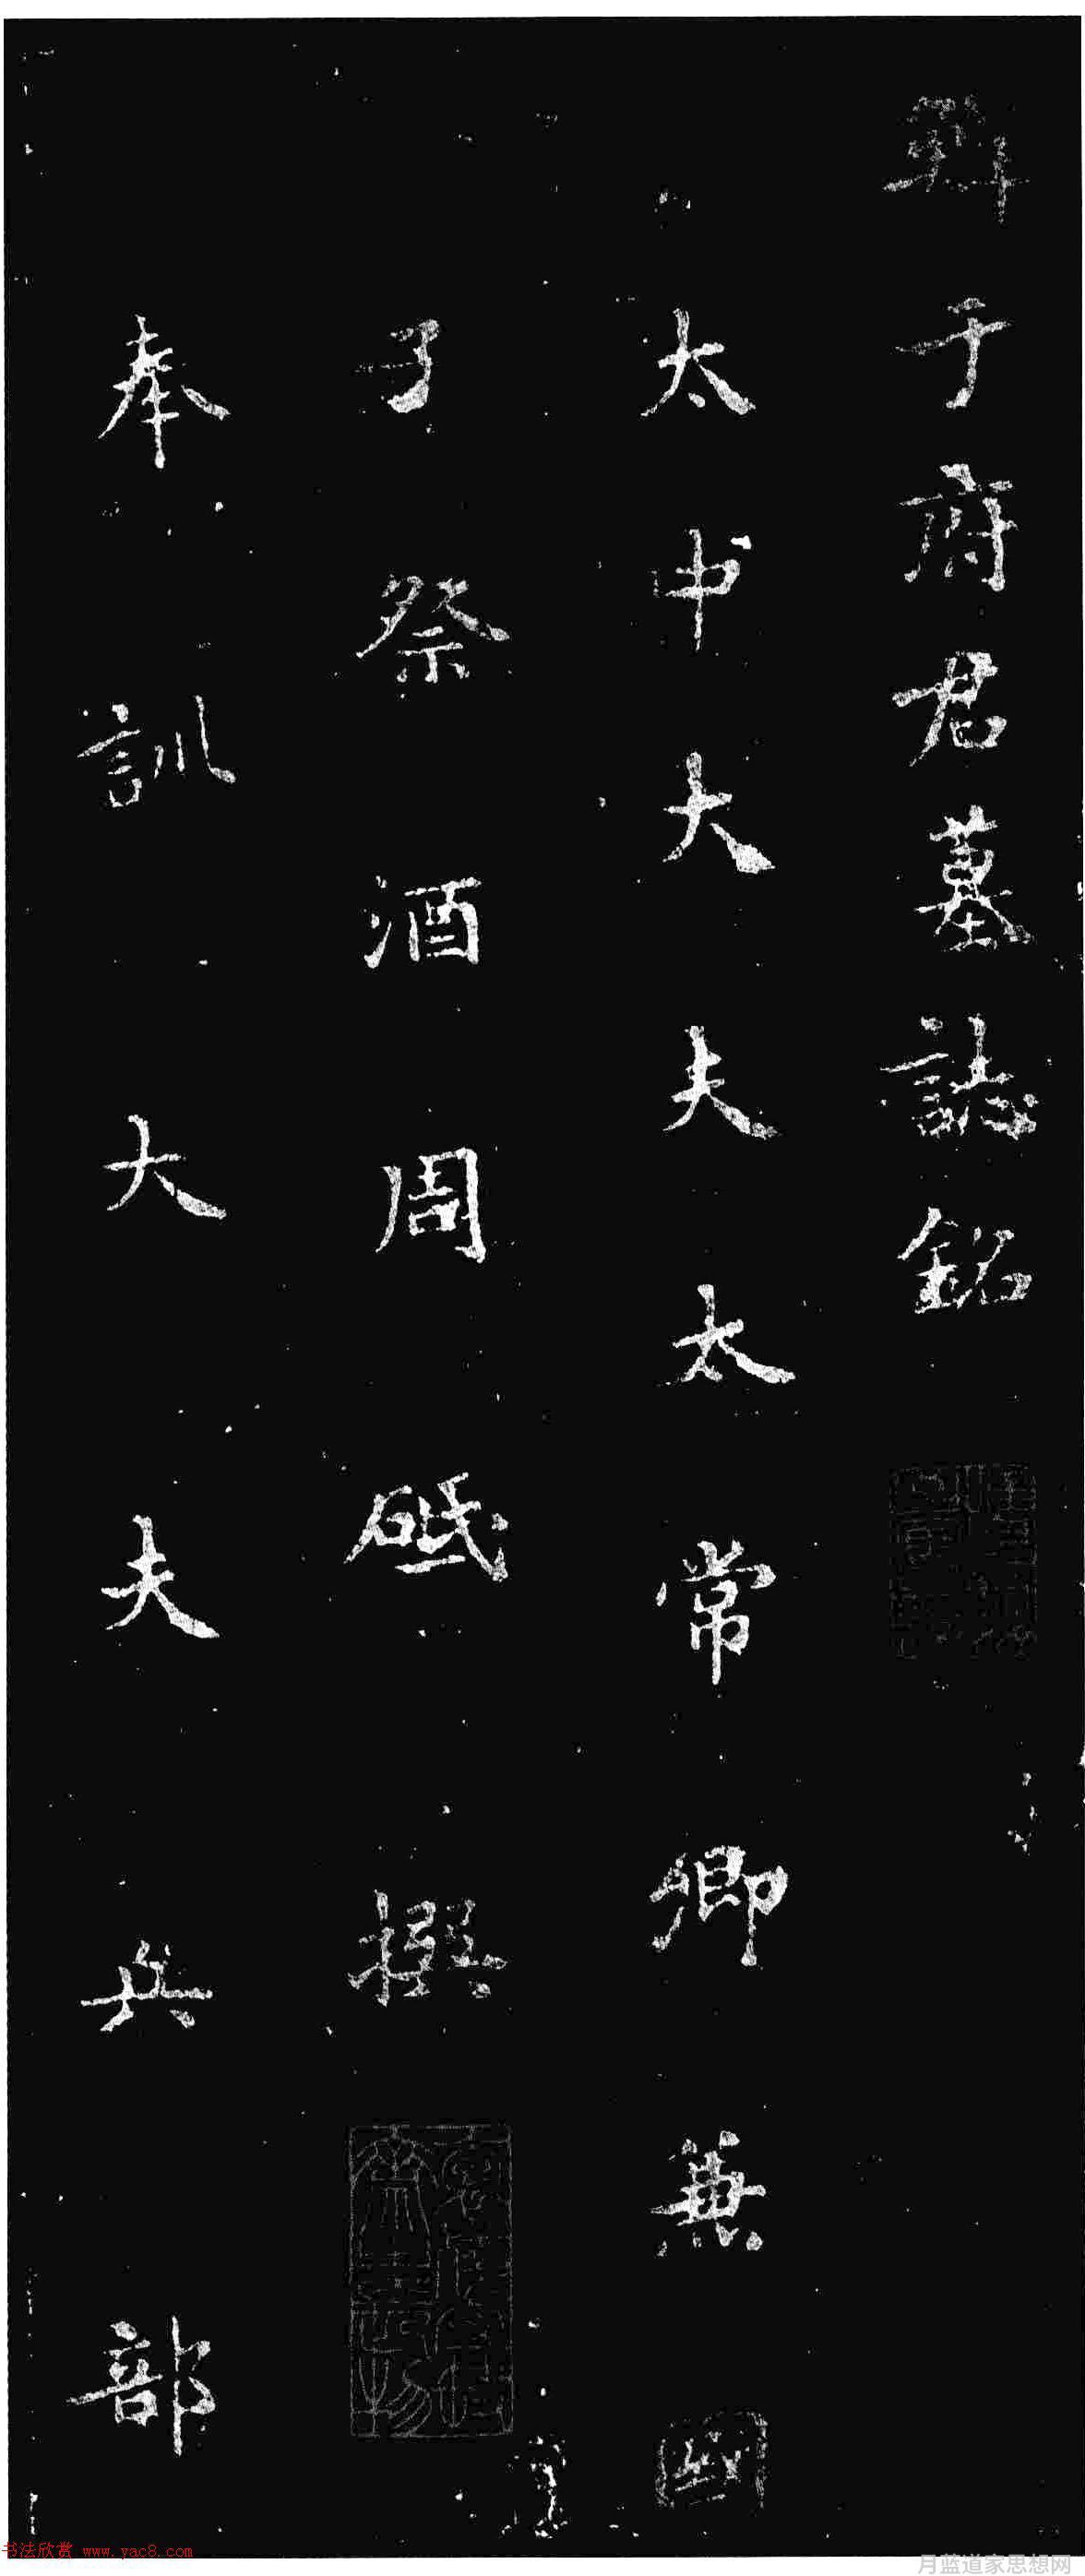 鮮于府君墓誌銘
太中大夫太常卿兼國
子祭酒周砥撰
奉訓大夫兵部
书法欣赏 www.yac8.com
月蓝道家思想网